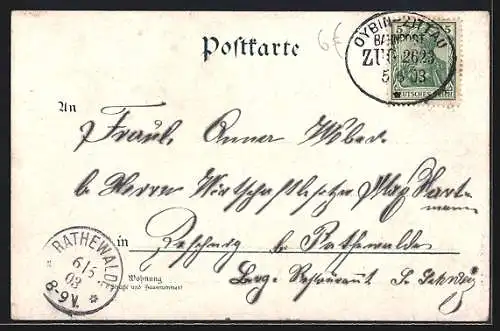 Postkarte
6€
OYBIN-ZITTAU
BAHNPOST
ZUG 2623
5 03
5 5
DEUTSCHES REICH
An
Fräul. Anna Weber
b. Herrn Wirtschaftsbesitzer Max Hart-
mann
in
b. Rathewalde
Wohnung
(Straße und Hausnummer)
Berg-Restaurant S. Schweiz
RATHEWALDE
6/5
03
8-9V.